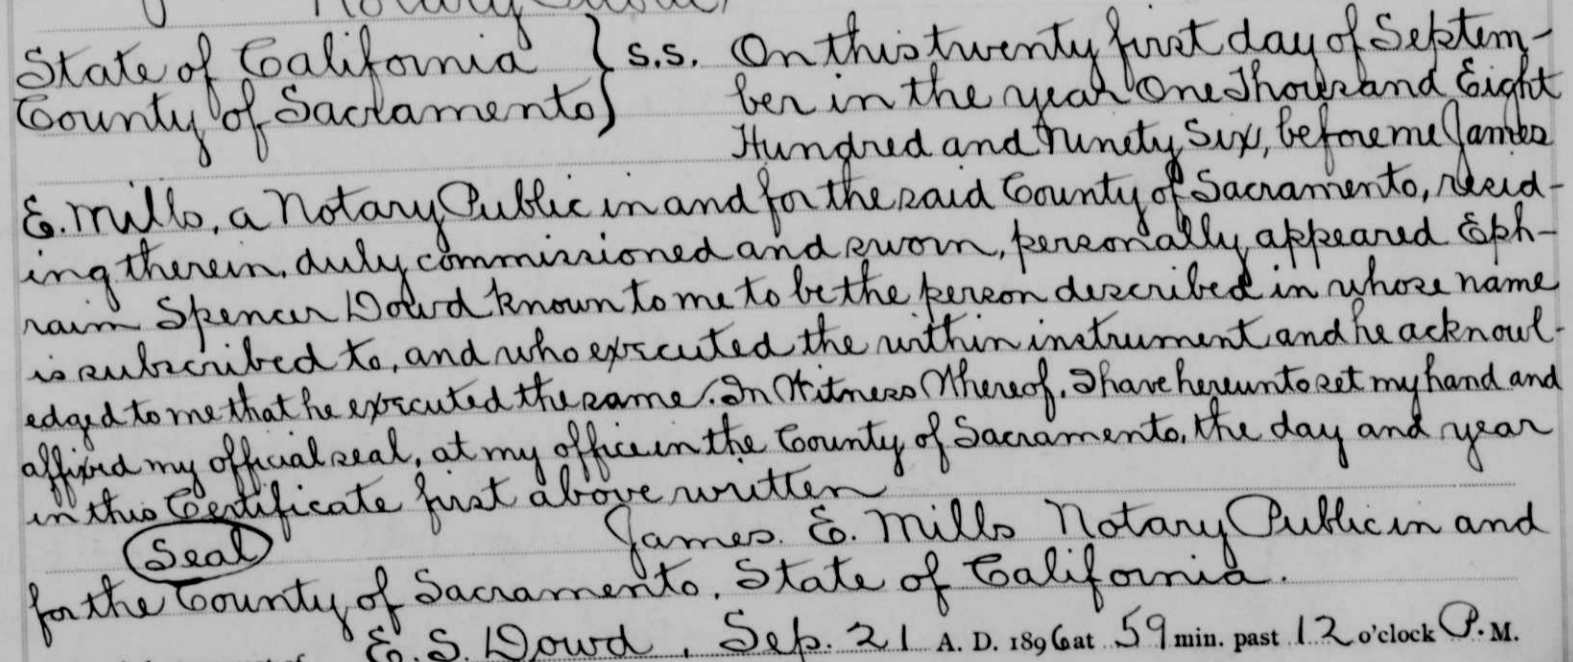 State of California } s.s. On this twenty first day of Septem-
County of Sacramento } ber in the year One Thousand Eight
Hundred and Ninety Six, before me James
E. Mills, a Notary Public in and for the said County of Sacramento, resid-
ing therein, duly commissioned and sworn, personally appeared Eph-
raim Spencer Dowd known to me to be the person described in whose name
is subscribed to, and who executed the within instrument and he acknowl-
edged to me that he executed the same. In Witness Whereof, I have hereunto set my hand and
affixed my official seal, at my office in the County of Sacramento, the day and year
in this Certificate first above written
(Seal) James. E. Mills Notary Public in and
for the County of Sacramento, State of California.
E. S. Dowd, Sep. 21 A. D. 1896 at 59 min. past 12 o'clock P. M.